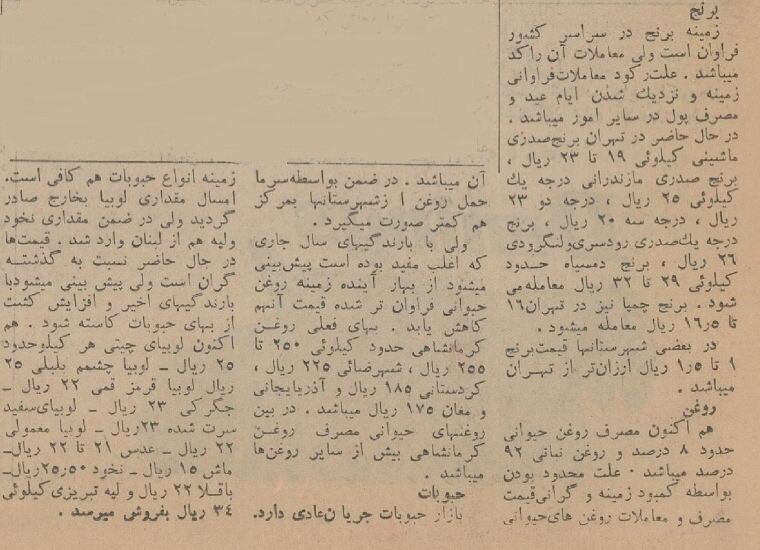 برنج
زمینه برنج در سراسر کشور
فراوان است ولی معاملات آن راکد
میباشد . علت رکود معاملات فراوانی
زمینه و نزدیک شدن ایام عید و
مصرف پول در سایر امور میباشد .
در حال حاضر در تهران برنج صدری
ماشینی کیلوئی ۱۹ تا ۲۳ ریال ،
برنج صدری مازندرانی درجه یک
کیلوئی ۲۵ ریال ، درجه دو ۲۳
ریال ، درجه سه ۲۰ ریال ، برنج
درجه یک صدری رودسری ولنگرودی
۲۶ ریال ، برنج دمسیاه حدود
کیلوئی ۲۹ تا ۳۲ ریال معامله می
شود . برنج چمپا نیز در تهران ۱۶
تا ۱۶٫۵ ریال معامله میشود .
در بعضی شهرستانها قیمت برنج
۱ تا ۱٫۵ ریال ارزان‌تر از تهران
میباشد .
روغن
هم اکنون مصرف روغن حیوانی
حدود ۸ درصد و روغن نباتی ۹۲
درصد میباشد . علت محدود بودن
بواسطه کمبود زمینه و گرانی قیمت
مصرف و معاملات روغن های حیوانی
آن میباشد . در ضمن بواسطه سرما
حمل روغن ا زشهرستانها بمرکز
هم کمتر صورت میگیرد .
ولی با بارندگیهای سال جاری
که اغلب مفید بوده است پیش بینی
میشود از بهار آینده زمینه روغن
حیوانی فراوان تر شده قیمت آنهم
کاهش یابد . بهای فعلی روغن
کرمانشاهی حدود کیلوئی ۲۵۰ تا
۲۵۵ ریال ، شهرضائی ۲۲۵ ریال ،
کردستانی ۱۸۵ ریال و آذربایجانی
و مغان ۱۷۵ ریال میباشد . در بین
روغنهای حیوانی مصرف روغن
کرمانشاهی بیش از سایر روغن‌ها
میباشد .
حبوبات
بازار حبوبات جریا ن عادی دارد.
زمینه انواع حبوبات هم کافی است.
امسال مقداری لوبیا بخارج صادر
گردید ولی در ضمن مقداری نخود
ولپه هم از لبنان وارد شد . قیمت‌ها
در حال حاضر نسبت به گذشته
گران است ولی پیش بینی میشود با
بارندگیهای اخیر و افزایش کشت
از بهای حبوبات کاسته شود . هم
اکنون لوبیای چیتی هر کیلو حدود
۲۵ ریال ـ لوبیا چشم بلبلی ۲۵
ریال لوبیا قرمز قمی ۲۲ ریال ـ
جگرکی ۲۳ ریال ـ لوبیای سفید
سرت شده ۲۳ ریال ـ لوبیا معمولی
۲۲ ریال ـ عدس ۲۱ تا ۲۲ ریال ـ
ماش ۱۵ ریال ـ نخود ۲۵٫۵۰ ریال ـ
باقلا ۲۲ ریال و لپه تبریزی کیلوئی
۳۴ ریال بفروش میرسد .